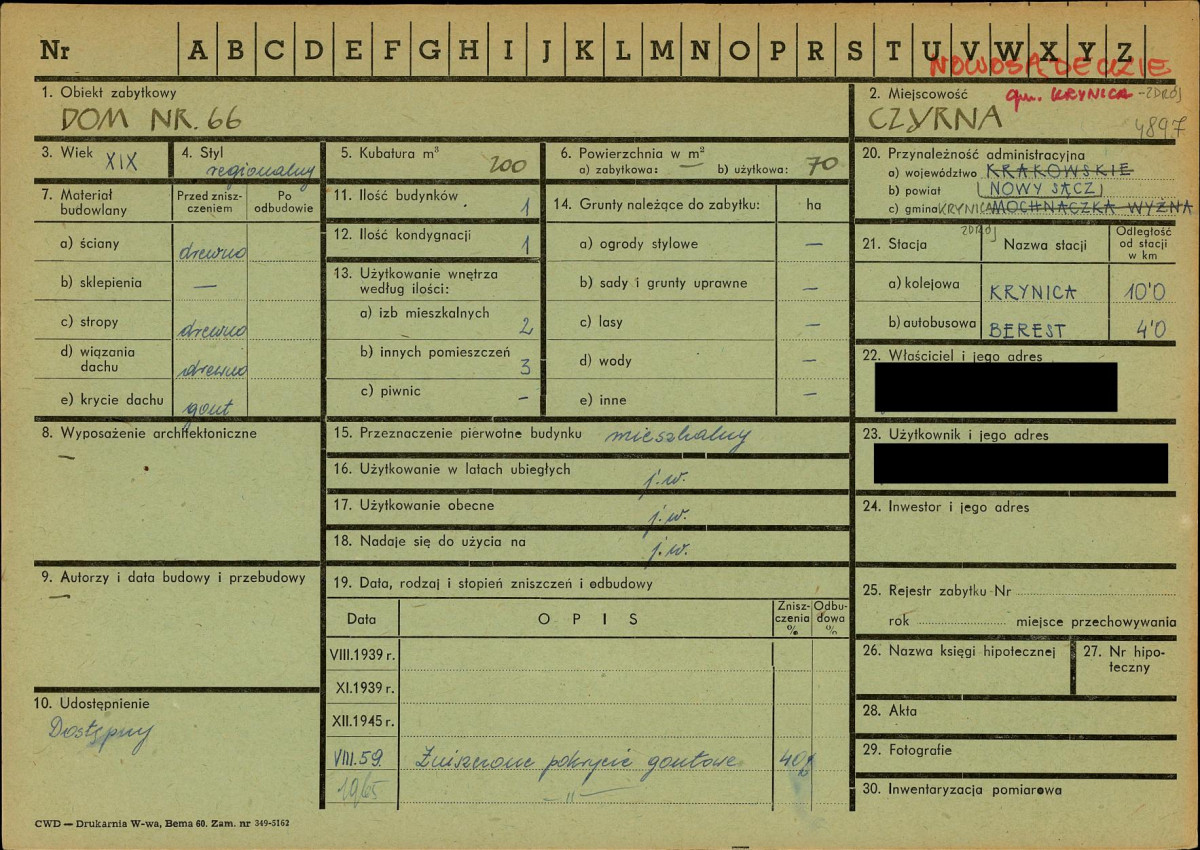 Nr A B C D E F G H I J K L M N O P R S T U V W X Y Z
NOWOSĄDECKIE
1. Obiekt zabytkowy
DOM NR. 66
2. Miejscowość gm. KRYNICA-ZDRÓJ
CZYRNA 4897
3. Wiek XIX
4. Styl regionalny
5. Kubatura m³ 200
6. Powierzchnia w m² —
a) zabytkowa: b) użytkowa: 70
20. Przynależność administracyjna
a) województwo KRAKOWSKIE
b) powiat (NOWY SĄCZ)
c) gmina KRYNICA ZDRÓJ MOCHNACZKA WYŻNA
7. Materiał budowlany
Przed zniszczeniem
Po odbudowie
a) ściany drewno
b) sklepienia —
c) stropy drewno
d) wiązania dachu drewno
e) krycie dachu gont
11. Ilość budynków 1
12. Ilość kondygnacji 1
13. Użytkowanie wnętrza według ilości:
a) izb mieszkalnych 2
b) innych pomieszczeń 3
c) piwnic –
14. Grunty należące do zabytku: ha
a) ogrody stylowe —
b) sady i grunty uprawne —
c) lasy —
d) wody —
e) inne —
21. Stacja
Nazwa stacji
Odległość od stacji w km
a) kolejowa KRYNICA 10'0
b) autobusowa BEREST 4'0
22. Właściciel i jego adres
23. Użytkownik i jego adres
8. Wyposażenie architektoniczne
—
15. Przeznaczenie pierwotne budynku mieszkalny
16. Użytkowanie w latach ubiegłych j.w.
17. Użytkowanie obecne j.w.
18. Nadaje się do użycia na j.w.
24. Inwestor i jego adres
9. Autorzy i data budowy i przebudowy
—
19. Data, rodzaj i stopień zniszczeń i odbudowy
Data
OPIS
Zniszczenia %
Odbudowa %
VIII.1939 r.
XI.1939 r.
XII.1945 r.
VIII.59. Zniszczone pokrycie gontowe 40%
1965 —„—
25. Rejestr zabytku Nr
rok miejsce przechowywania
26. Nazwa księgi hipotecznej
27. Nr hipoteczny
10. Udostępnienie
Dostępny
28. Akta
29. Fotografie
30. Inwentaryzacja pomiarowa
CWD — Drukarnia W-wa, Bema 60. Zam. nr 349-5162